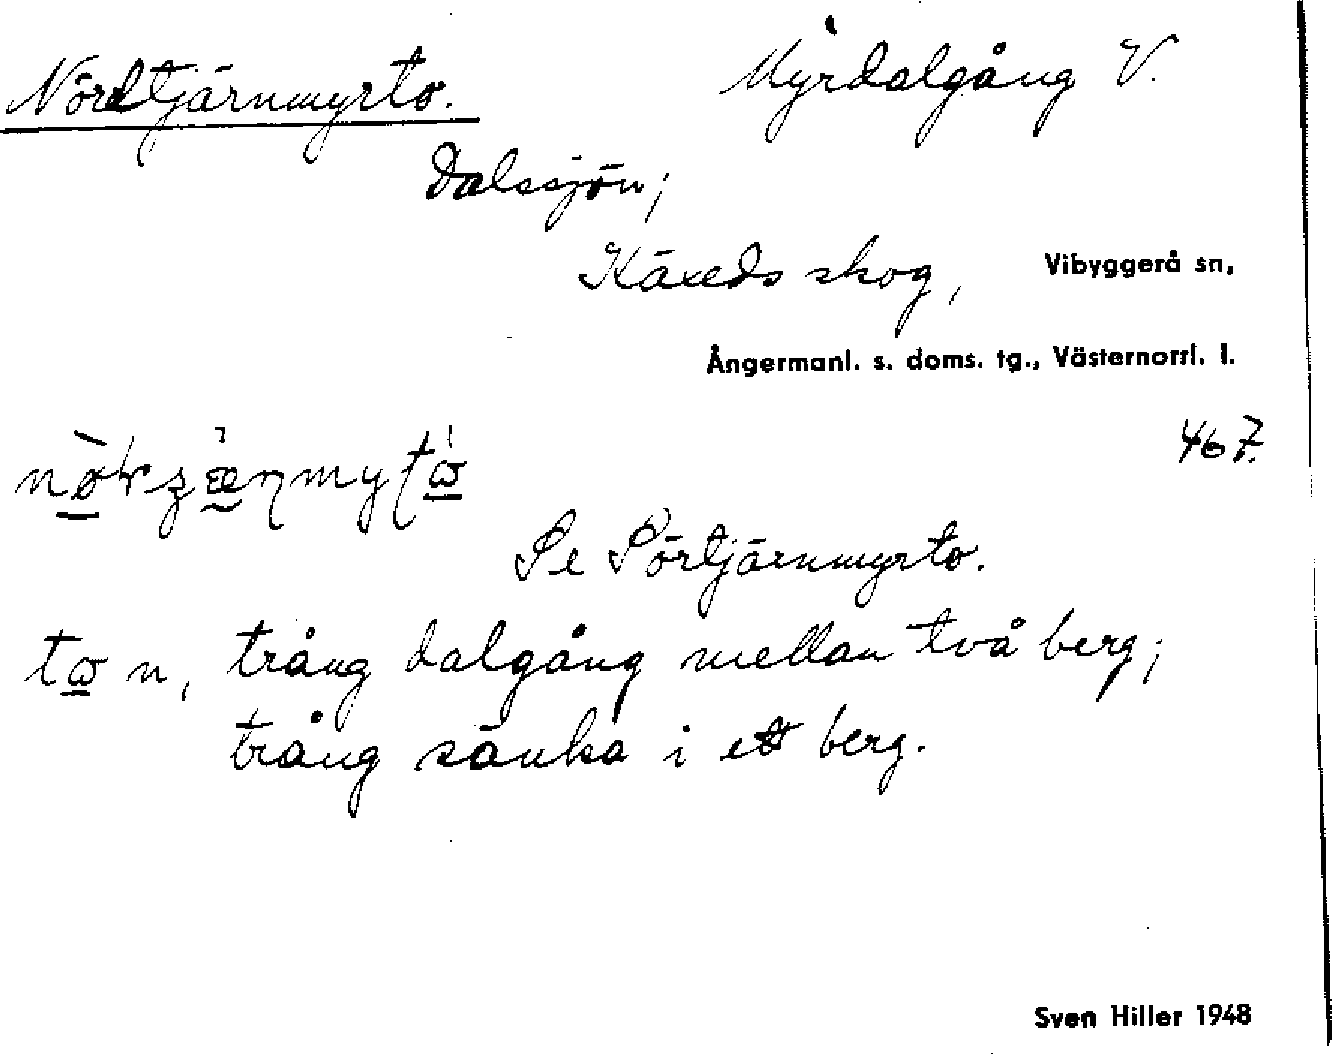 Nördtjärnmyrto. Myrdalgång V.
Dalssjön;
Käxeds skog, Vibyggerå sn,
Ångermanl. s. doms. tg., Västernorrl. l.
467.
Se Sörtjärnmyrto.
n, trång dalgång mellan två berg;
trång sänka i ett berg.
Sven Hiller 1948